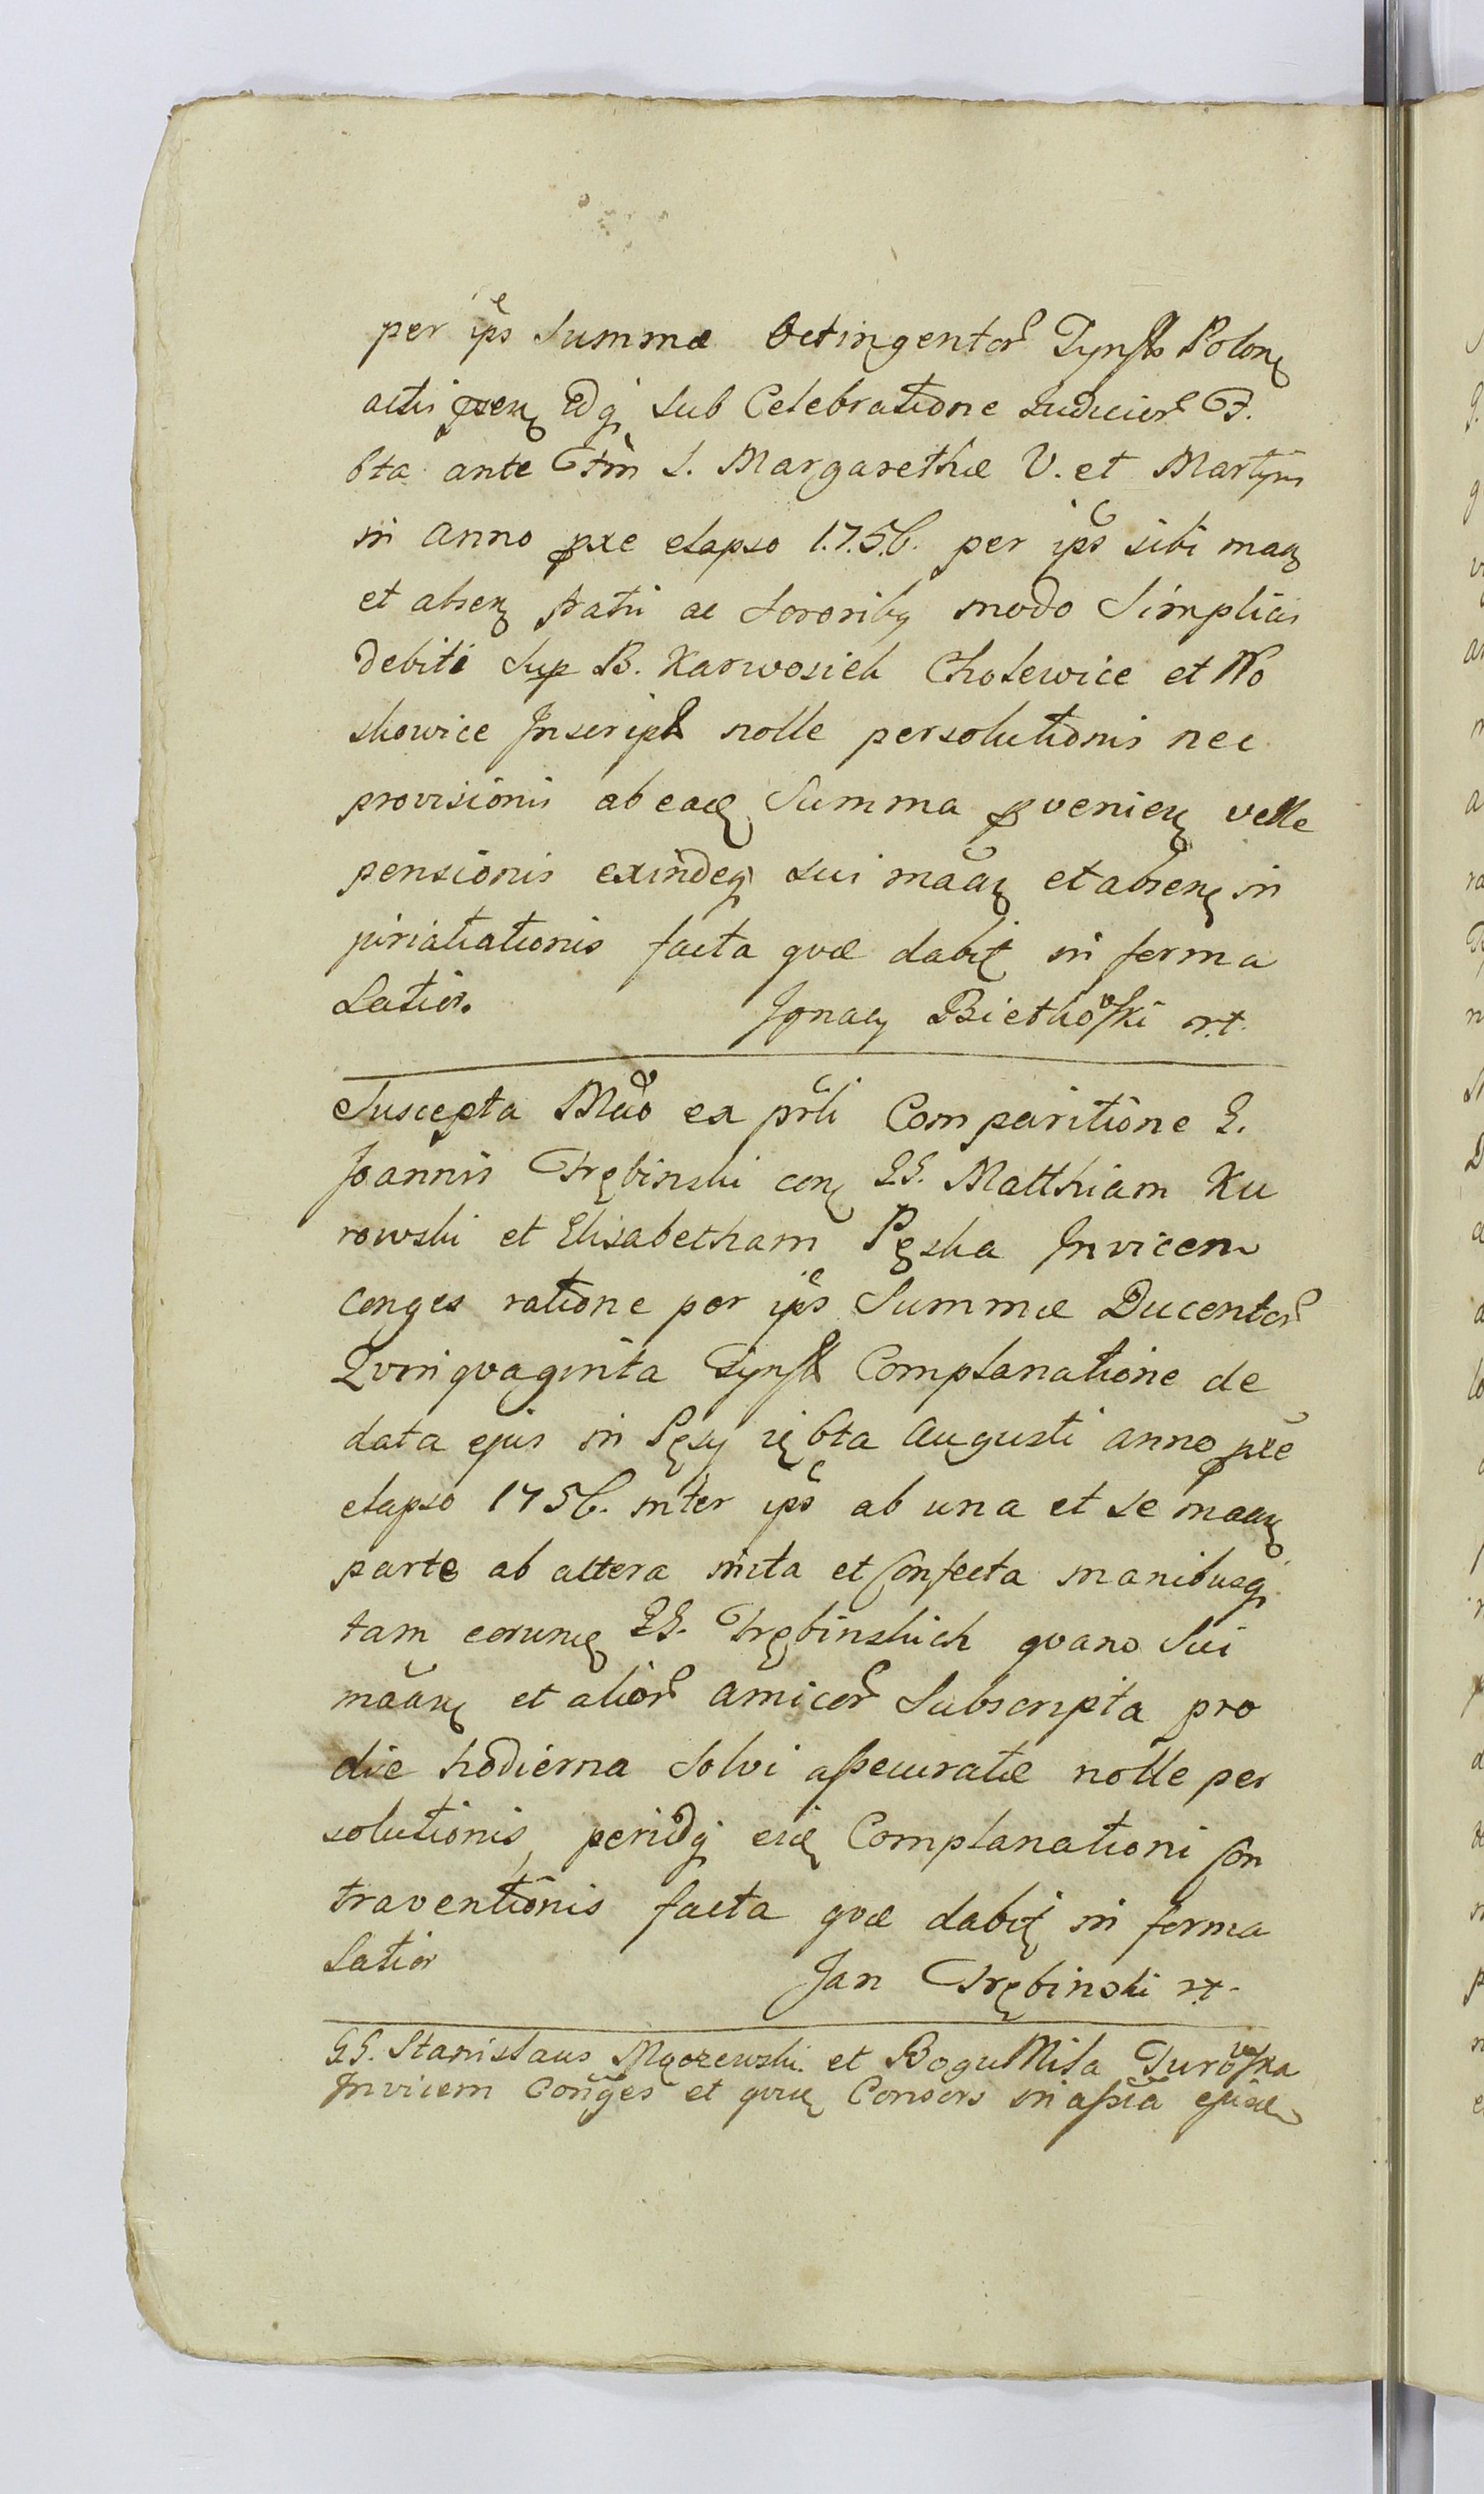 per ips Summæ Octingentor Tynf Polon
actis prsen Edq Sub Celebratione Iudicior F.
6ta ante Ftm S. Margarethæ V. et Martyris
in anno præ elapso 1.7.5.6. per ips sibi man
et absen fratri ac Sororibq modo Simplicis
Debiti Sup B. Karwosieki Cholewice et No
skowice Inscript nolle persolutionis nec
provisionis ab eade Summa pvenien velle
pensionis exindeq sui manen et absen in
juriatiationis facta qvæ dabit in forma
Latior. Ignacy Bietkowski mt.
Suscepta Mdo ex prli Comparitione G.
Joannis Trębinski con GG. Matthiam Ku
rowski et Elisabetham Pęska Invicem
conges ratione per ips Summæ Ducentor
Qvinqvaginta Tynf Complanatione de
data ejus in Pęsy 6ta Augusti anno præ
elapso 1756. inter ips ab una et se manen
parte ab altera inita et Confecta manibusq
tam eorund GG. Trębinskich qvano Sui
manen et alior amicor Subscripta pro
die hodierna Solvi assecuratæ nolle per
solutionis, periudq eid Complanationi Con
traventionis facta qvæ dabit in forma
Latior Jan Trębinski mt.
GG. Stanislaus Mączewski et BoguMila Turowska
Invicem Conges et qvid Consors in assia ejusd